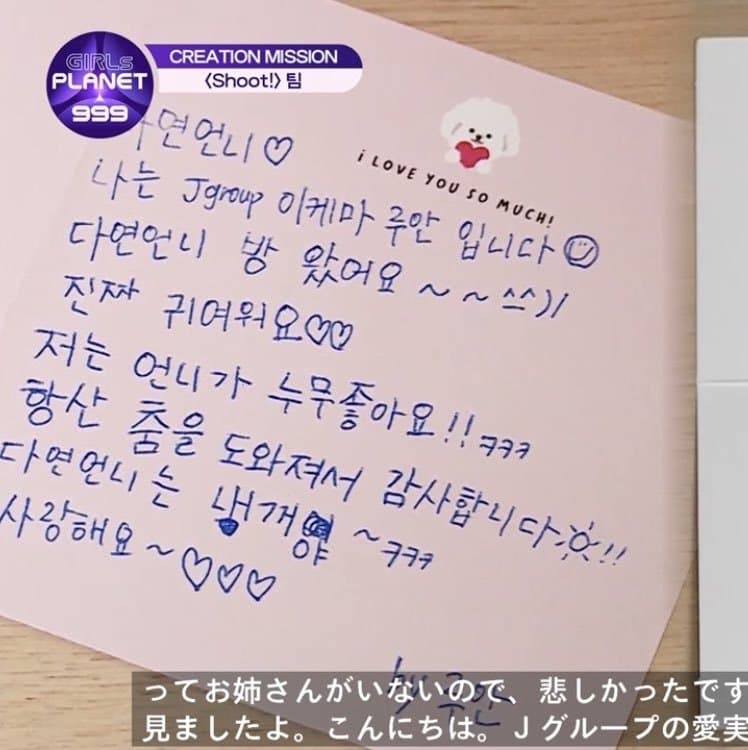 GIRLS
PLANET
999
CREATION MISSION
〈Shoot!〉 팀
I LOVE YOU SO MUCH!
다연언니♡
나는 Jgroup 이케마 루안 입니다
다연언니 방 왔어요 ~ ~ ^^)/
진짜 귀여워요♡♡
저는 언니가 누무좋아요!! ㅋㅋㅋ
항산 춤을 도와져서 감사합니다☼!!
다연언니는 내개야 ~ㅋㅋㅋ
사랑해요~♡♡♡
by 루안
ってお姉さんがいないので、悲しかったです
見ましたよ。こんにちは。Jグループの愛実